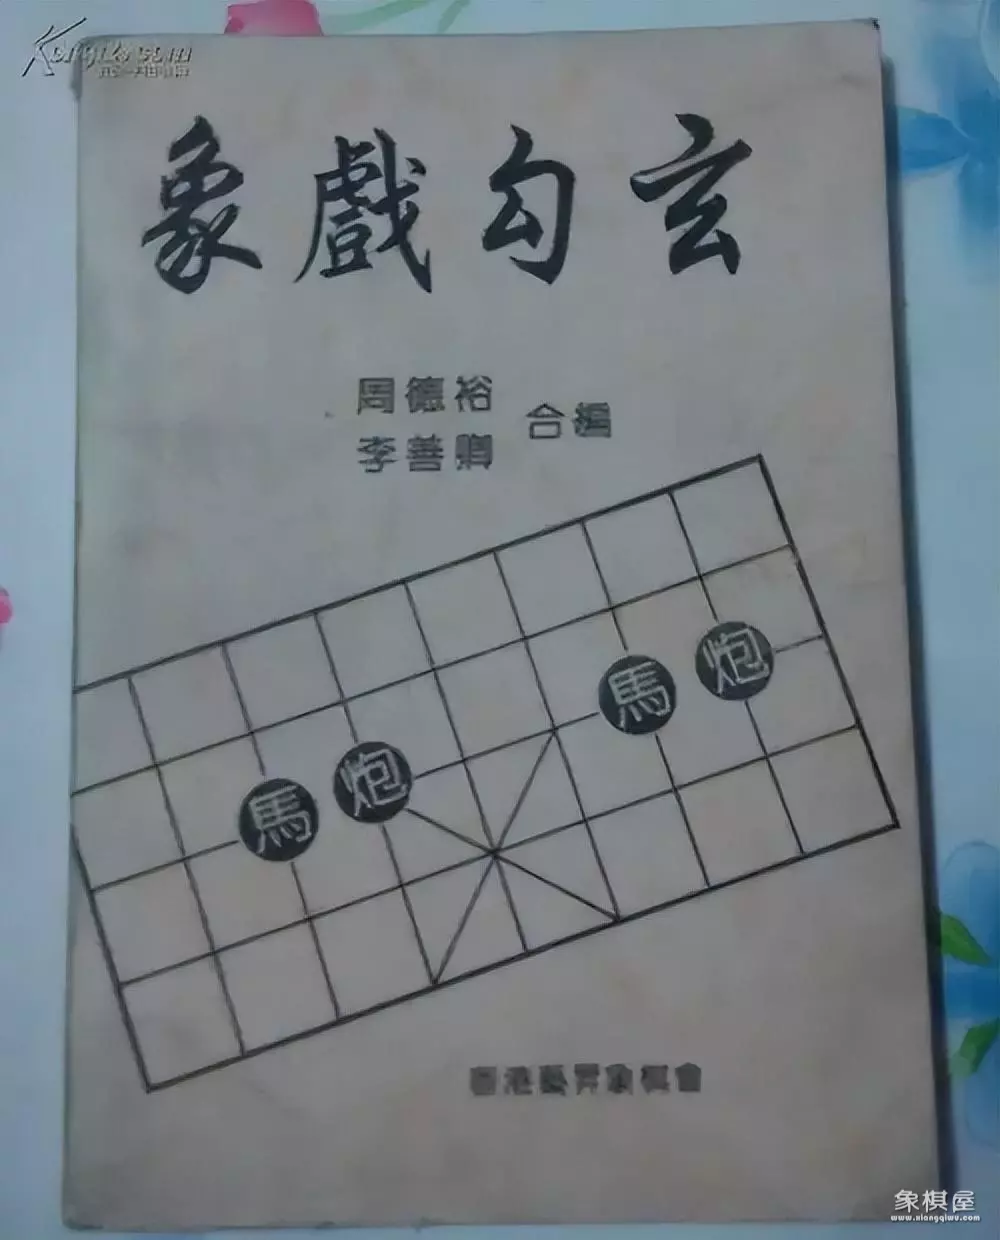 Kongfz.com
象戲勾玄
周德裕
李善卿
合編
馬 炮
馬 炮
香港藝昇象棋會
象棋屋
www.xiangqiwu.com